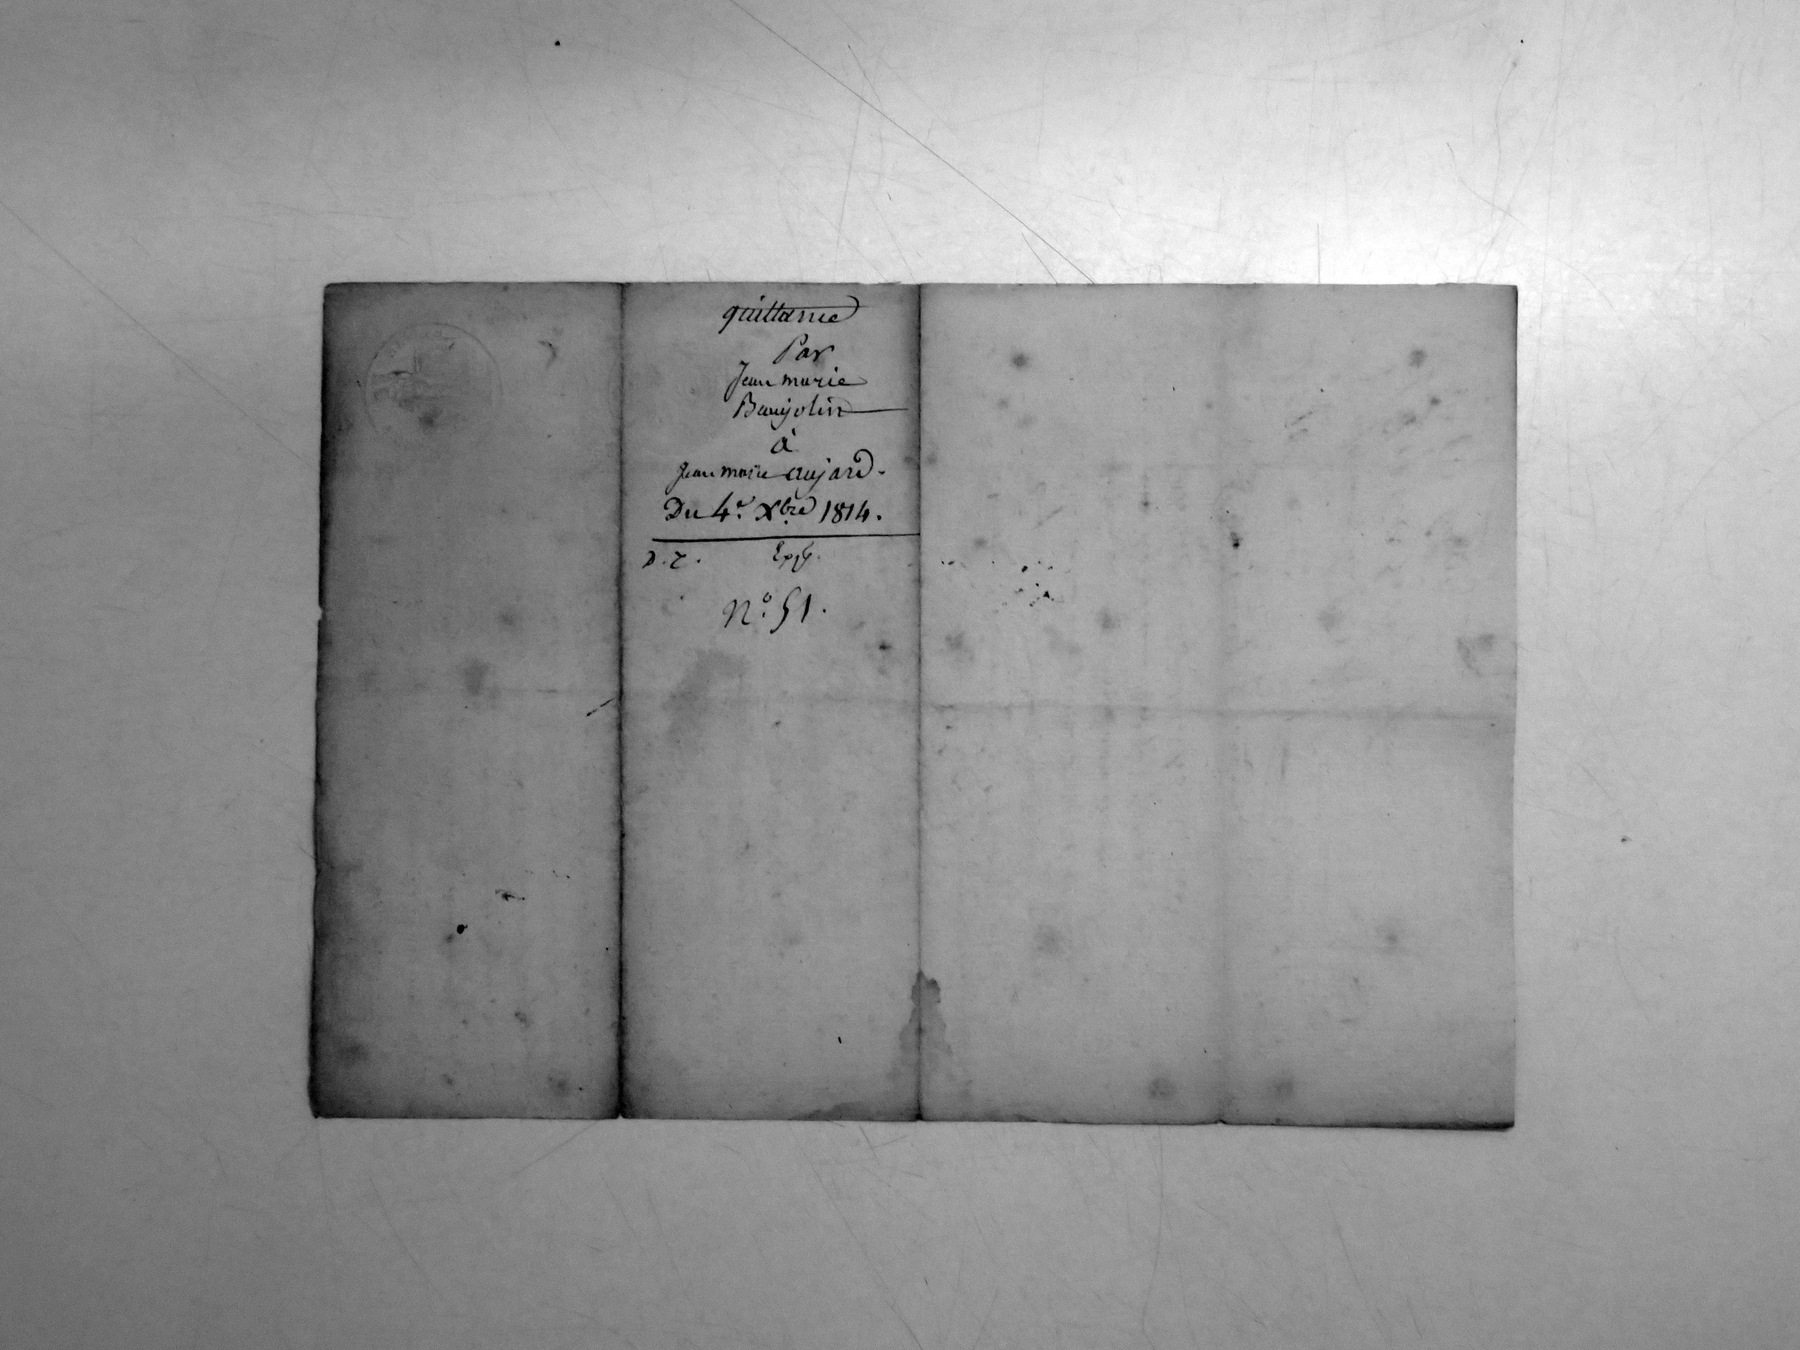 quittance
Par
Jean marie
Baujolin
à
Jean marie aujard.
Du 4.e Xbre 1814.
D. 7. Exp.
N.º 51.